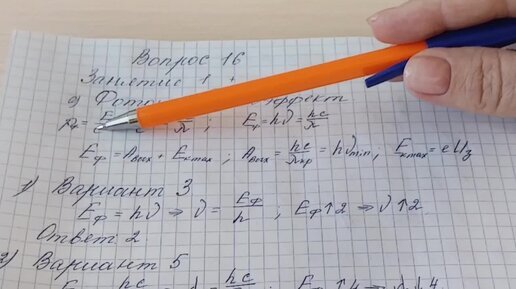 Вопрос 16
Занятие 1
Фото эффект
E_γ = hν = hc/λ
E_ф = A_вых + E_к max ; A_вых = hc/λ_кр = hν_min ; E_к max = eU_з
1) Вариант 3
E_ф = hν ⇒ ν = E_ф/h ; E_ф ↑ 2 ⇒ ν ↑ 2
Ответ 2
2) Вариант 5
hc